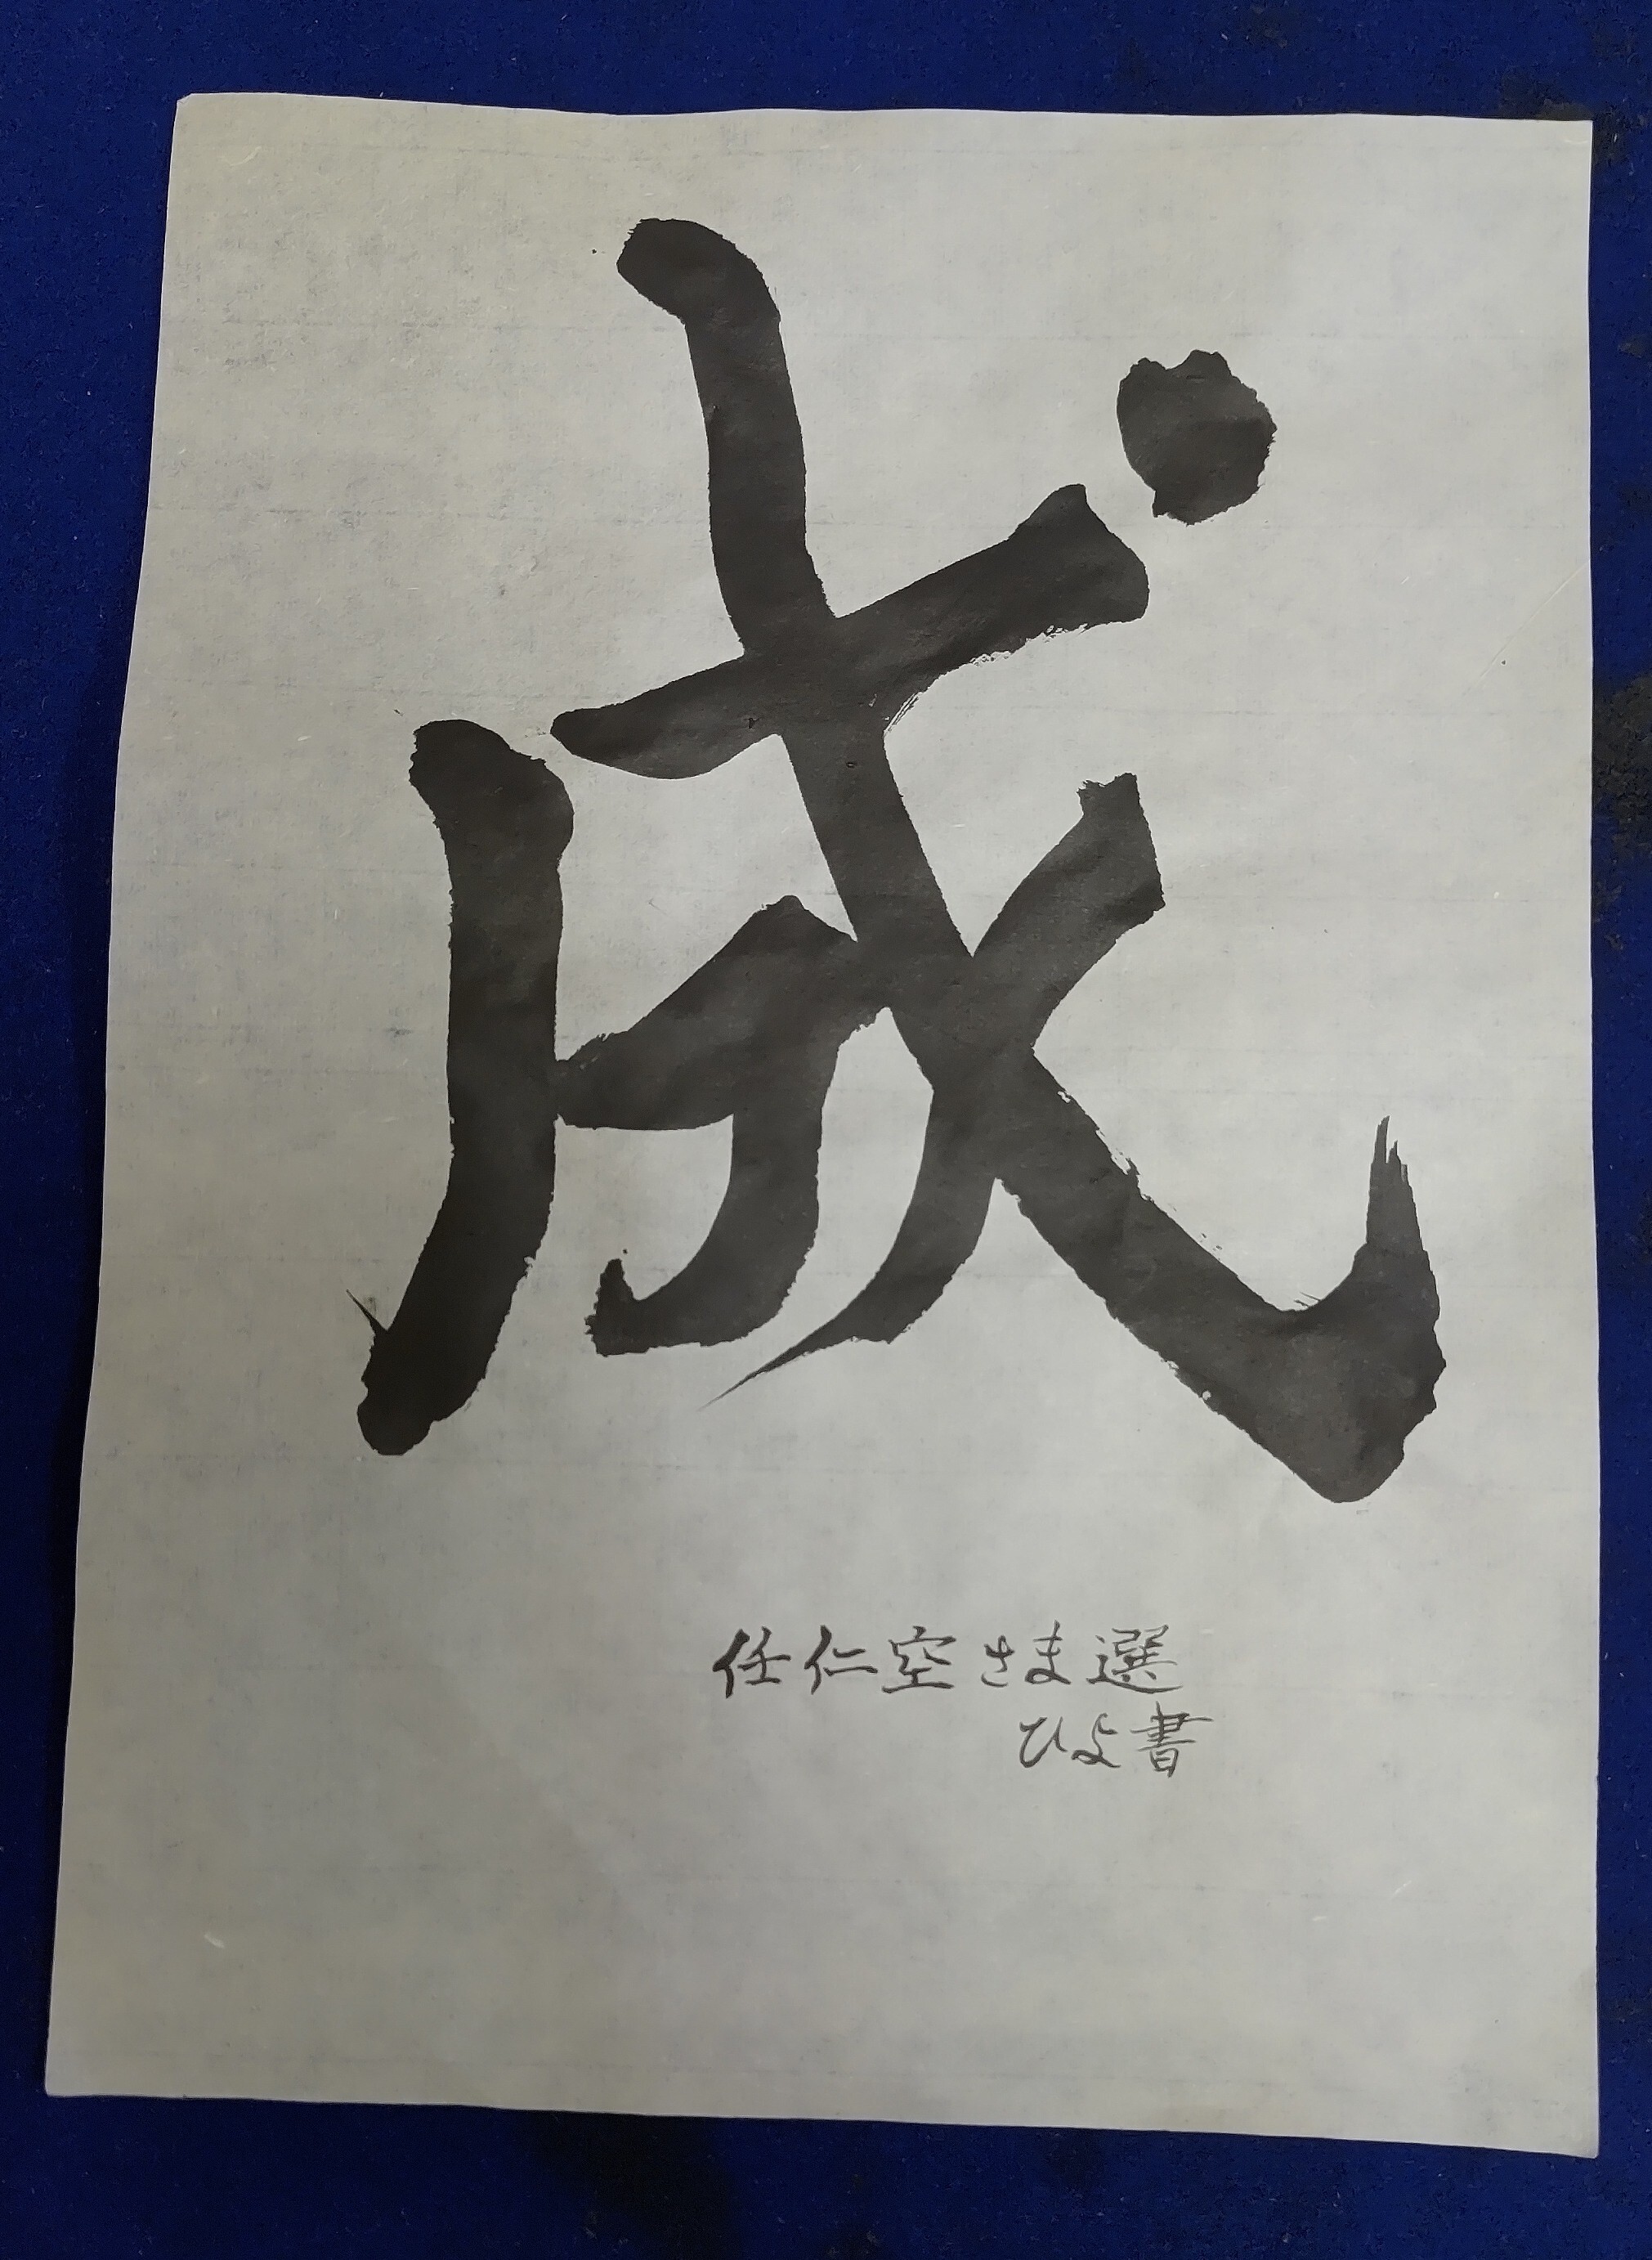 成
任仁空さま選
ひよ書